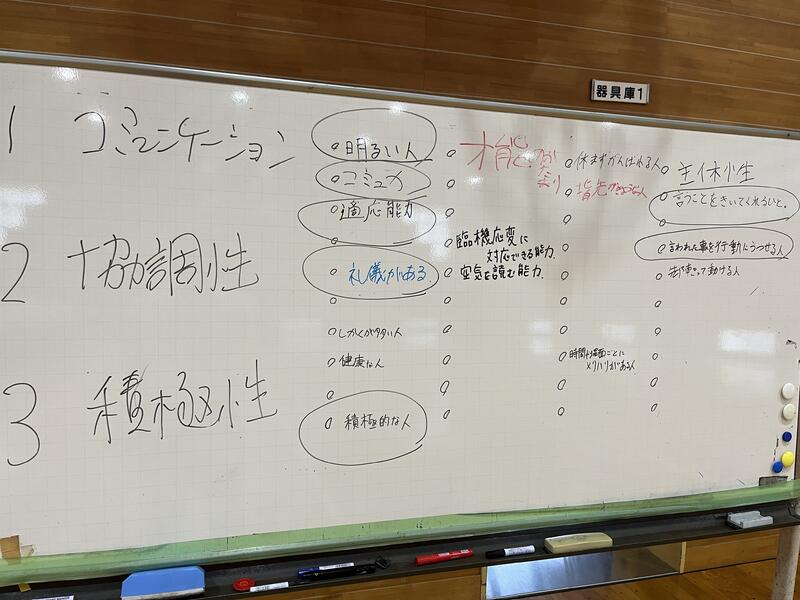 器具庫1
1 コミュニケーション
2 協調性
3 積極性
明るい人
コミュ力
適応能力
礼儀がある。
しかくが多い人
健康な人
積極的な人
才能
臨機応変に
対応できる能力.
空気を読む能力.
休まずがんばれる人
指先がきような人
時間や場面ごとに
メリハリがある人
主体性
言うことをきいてくれるひと。
言われた事を行動にうつせる人
動ける人